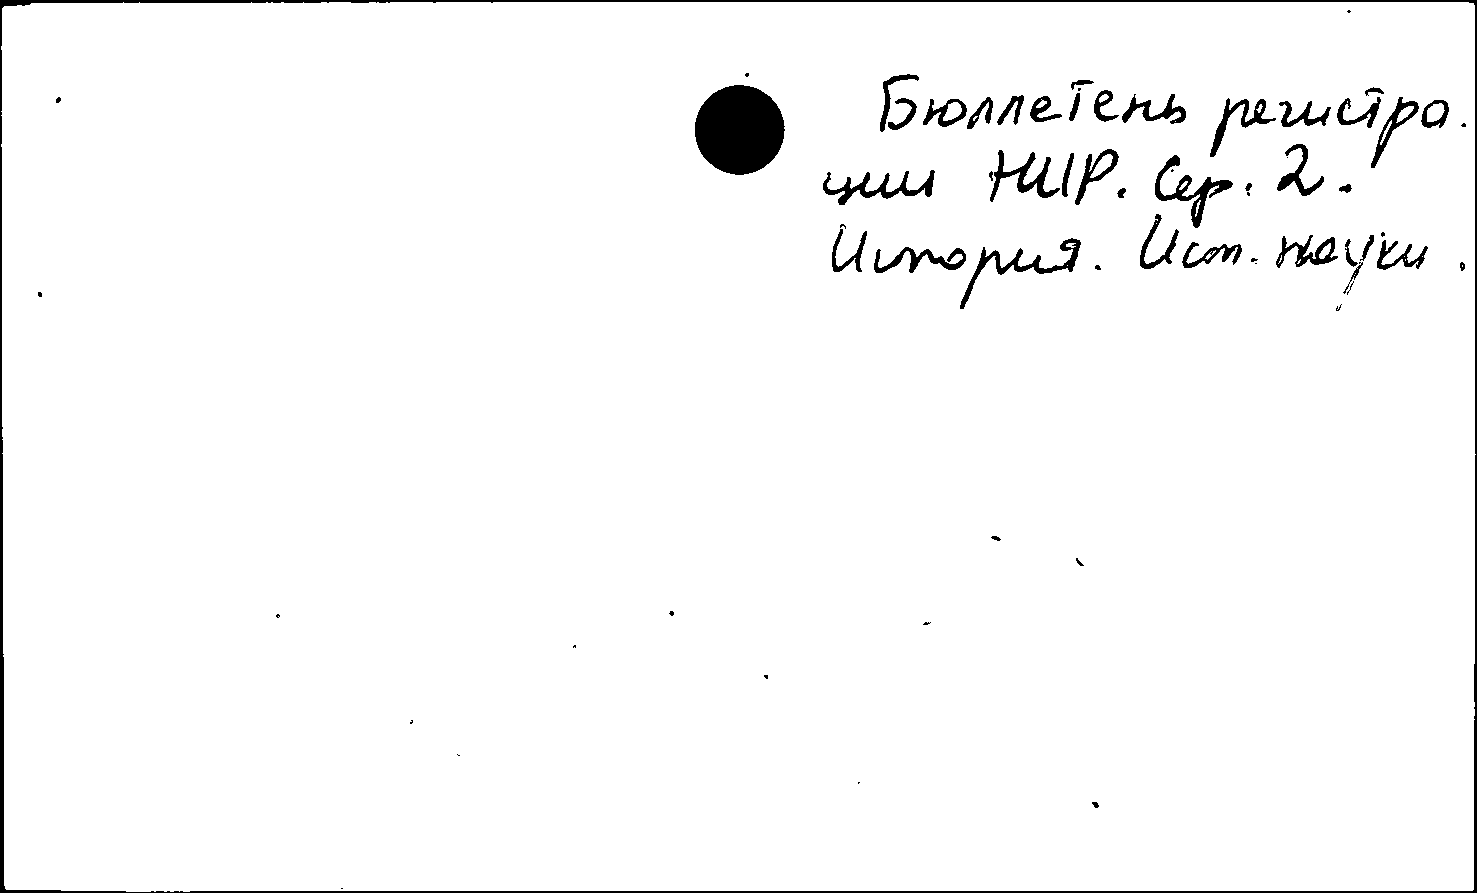 Бюллетень регистра-
ции НИР. Сер. 2.
История. Ист. науки.